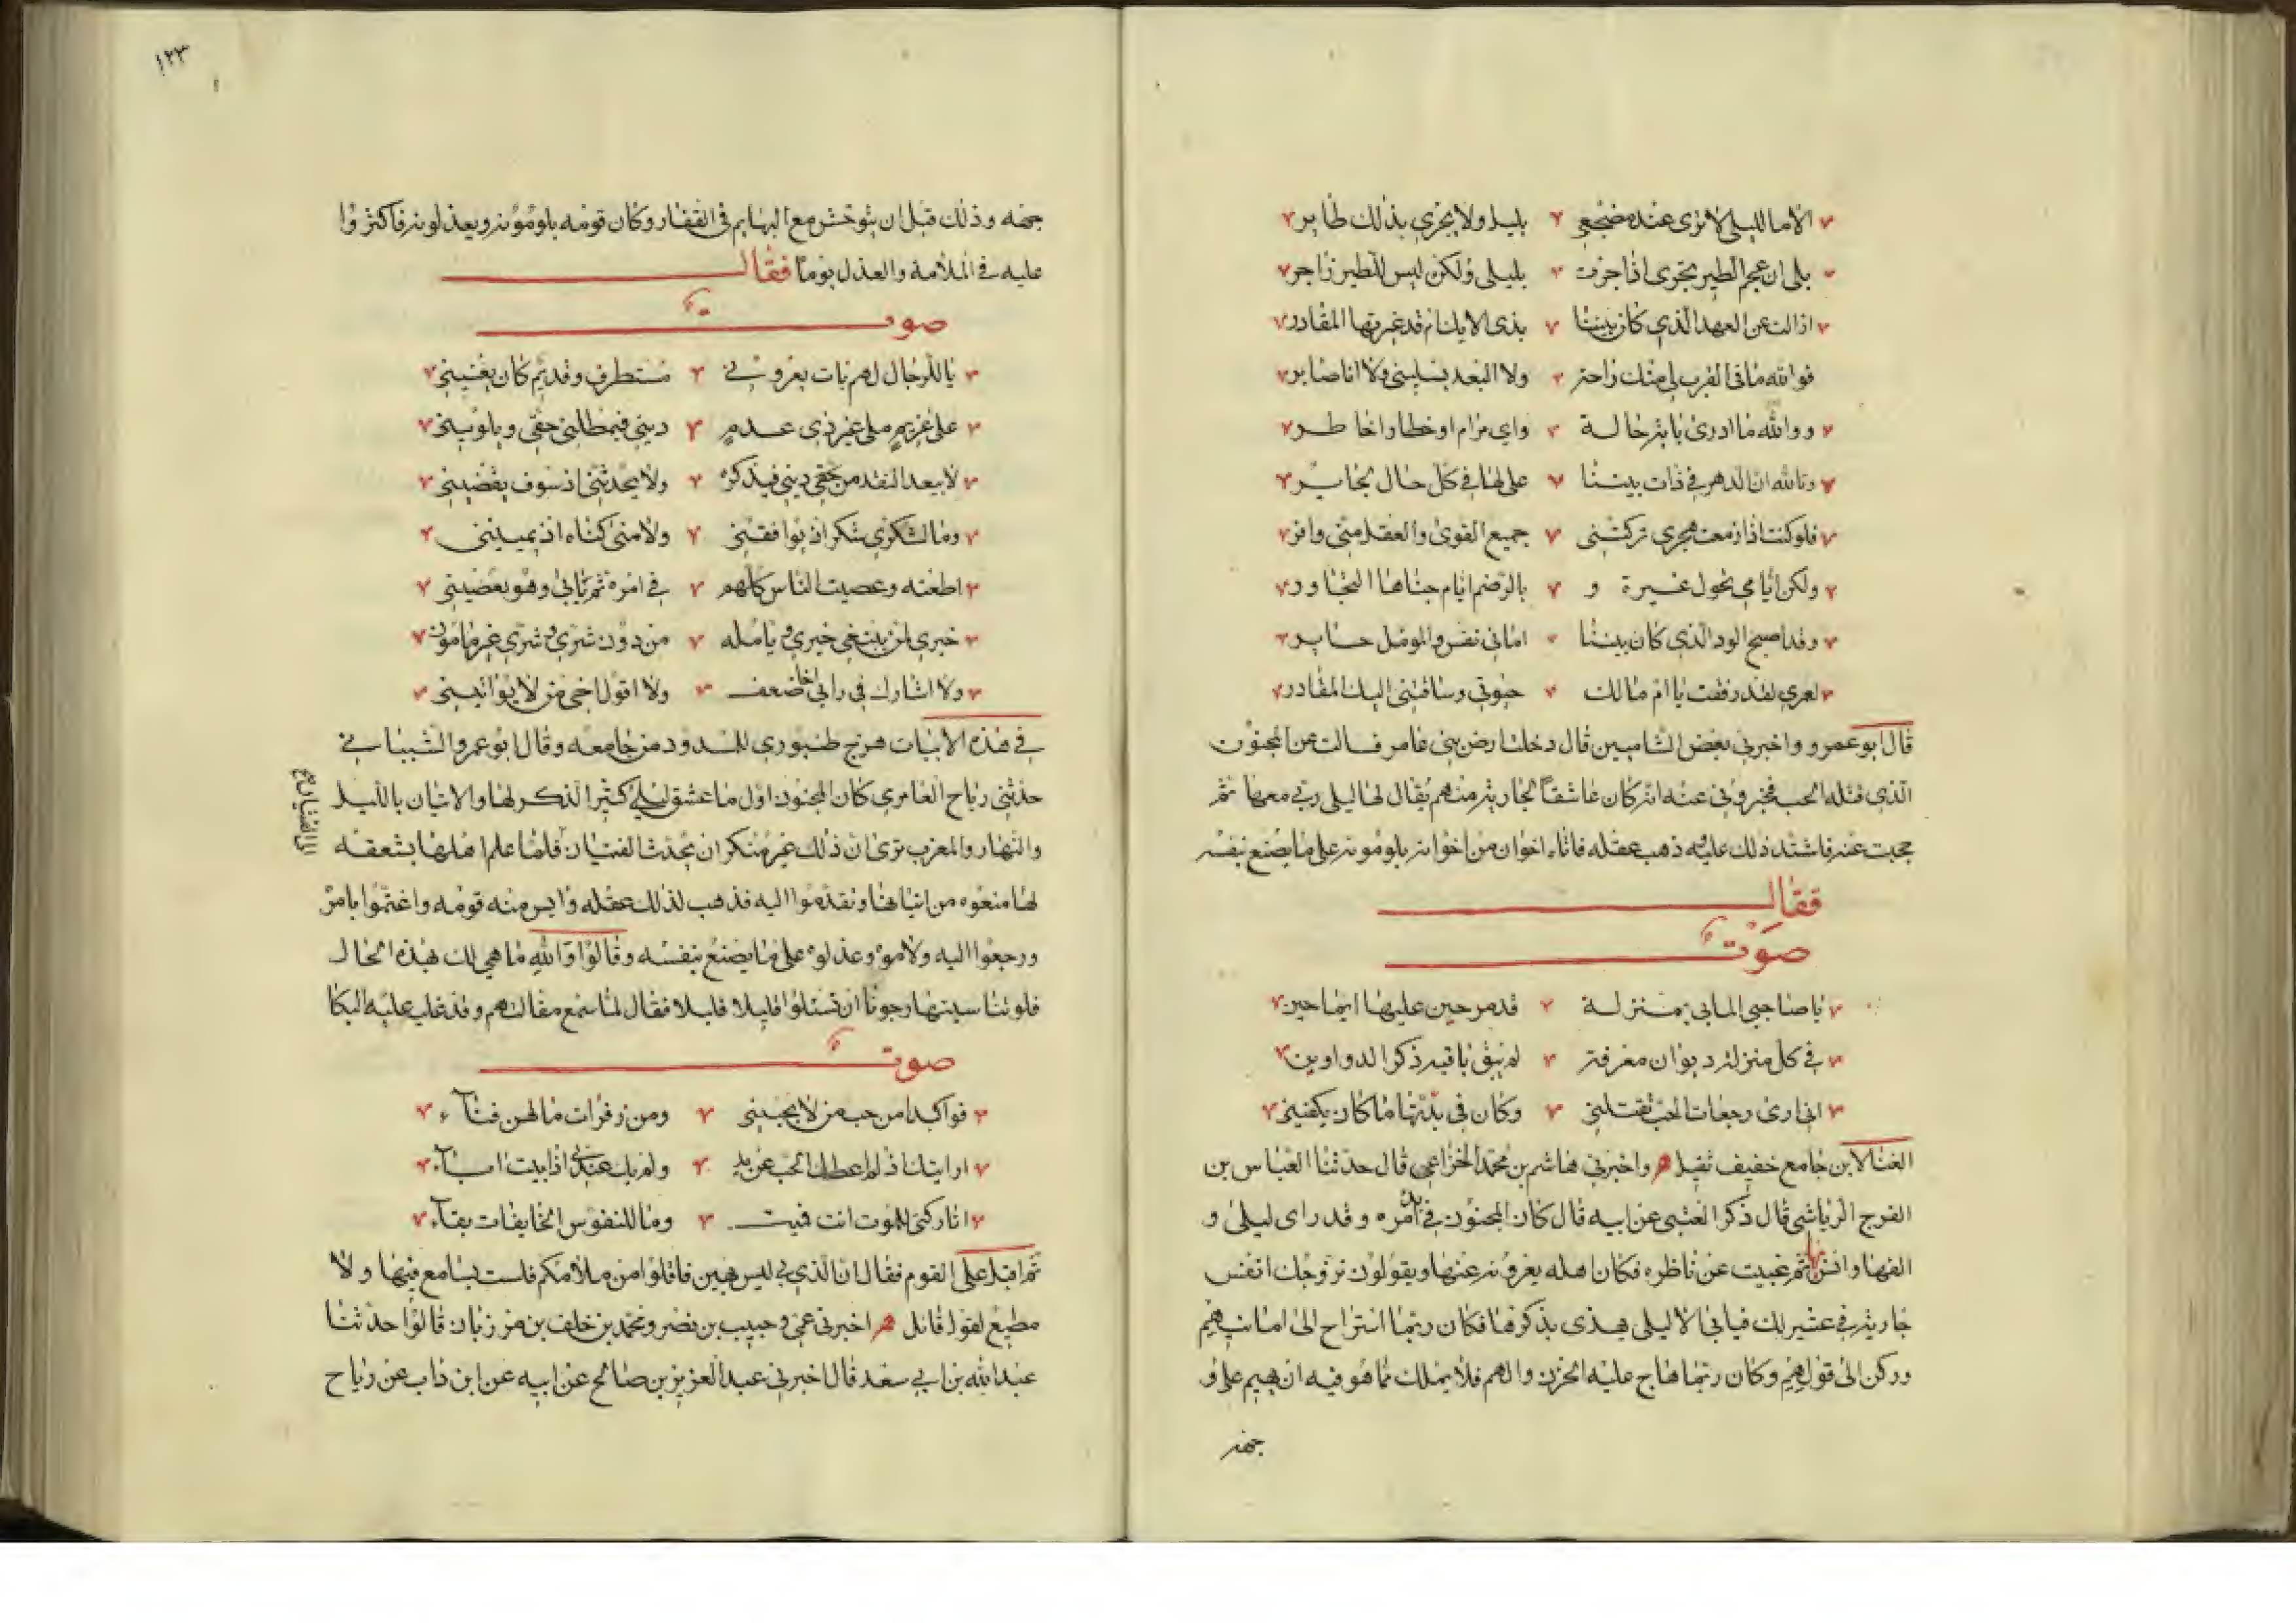 الا ما لليلى لا ترى عند مضجعي بليل ولا يجري بذلك طاير
بلى ان عجم الطير تجري اذا جرت بليلى ولكن ليس للطير زاجر
ازالت عن العهد الذي كان بيننا بذي الاثل ام قد غيرتها المقادر
فوالله ما في القرب لي منك راحة ولا البعد يسليني ولا انا صابر
ووالله ما ادرى باية حالة واي مرام او خطار اخاطر
وتالله ان الدهر في ذات بيننا علي لها في كل حال لجاير
فلو كنت اذ ازمعت هجري تركتني جميع القوى والعقل مني وافر
ولكن ايامي بحول عنيرة و بالرضم ايام جناها التجاور
وقد اصبح الود الذي كان بيننا اماني نفس والمومل حاير
لعمري لقد رنقت يا ام مالك حيوتي وساقتني اليك المقادر
قال ابو عمرو واخبرني بعض الشاميين قال دخلت ارض بني عامر فسالت عن المجنون
الذي قتله الحب فخبروني عنه انه كان عاشقاً لجارية منهم يقال لها ليلى ربي معها ثم
حجبت عنه فاشتد ذلك عليه وذهب عقله فاتاه اخوان من اخوانه يلومونه على ما يصنع بنفسه
فقال
صوت
يا صاحبي الما بي بمنزلة قد مر حين عليها ايما حين
في كل منزلة ديوان معرفة لم يبق باقية ذكر الدواوين
اني ارى رجعات الحب تقتلني وكان في بدئها ما كان يكفيني
الغنا لابن جامع خفيف ثقيل هـ واخبرني هاشم بن محمد الخزاعي قال حدثنا العباس بن
الفرج الرياشي قال ذكر العتبي عن ابيه قال كان المجنون في بدء امره وقد راى ليلى و
الفها وانس بها ثم غيبت عن ناظره فكان اهله يعزونه عنها ويقولون نزوجك انفس
جارية في عشيرتك فيابى الا ليلى ويهذى بذكرها فكان ربما استراح الى امانيهم
وركن الى قولهم وكان ربما هاج عليه الحزن والهم فلا يملك مما هو فيه ان يهيم على و
جهه
١٢٣
جهه وذلك قبل ان يتوحش مع البهايم في القفار وكان قومه يلومونه ويعذلونه فاكثروا
عليه في الملامة والعذل يوماً فقال
صوت
يا للرجال لهم بات يعروني مستطرف وقديم كان يعنيني
على غريم ملي غير ذي عدم ديني فيمطلني حقي ويلويني
لا يبعد النقد من حقي ديني فيذكره ولا يحدثني ان سوف يقضيني
وما لشكري شكر اذ يوافقني ولا منى كمناه اذ يمنيني
اطعته وعصيت الناس كلهم في امره ثم يابى وهو يعصيني
خيري لمن يبتغي خيري ويامله من دون شري وشري غير مامون
ولا اشارك في رايي اخا ضعف ولا اقول اخي من لا يواتيني
في هذه الابيات هزج طنبوري للمسدود من جامعه وقال ابو عمرو الشيباني
حدثني رباح العامري كان المجنون اول ما عشق ليلى كثير الذكر لها والاتيان بالليل
والنهار والعرب ترى ان ذلك غير منكر ان يتحدث الفتيان فلما علم اهلها بتعشقه
الى الفتيات صح
لها منعوه من اتيانها وتقدموا اليه فذهب لذلك عقله وايس منه قومه واغتموا بامره
ورجعوا اليه ولاموه وعذلوه على ما يصنع بنفسه وقالوا والله ما هي لك بهذه الحال
فلو تناسيتها رجونا ان تسلوا قليلا قليلا فقال لما سمع مقالتهم وقد غلب عليه البكا
صوت
فواكبدا من حب من لا يحبني ومن زفرات ما لهن فناء
اريتك ان لم اعطك الحب عن يد ولم يك عندي اذ ابيت اباء
اتاركتي للموت انت فميت وما للنفوس الخايفات بقاء
ثم اقبل على القوم فقال ان الذي بي ليس بهين فاقلوا من ملامكم فلست بسامع فيها ولا
مطيع لقول قائل هـ اخبرني عمي وحبيب بن نصر ومحمد بن خلف بن مرزبان قالوا حدثنا
عبد الله بن ابي سعد قال اخبرني عبد العزيز بن صالح عن ابيه عن ابن داب عن رباح